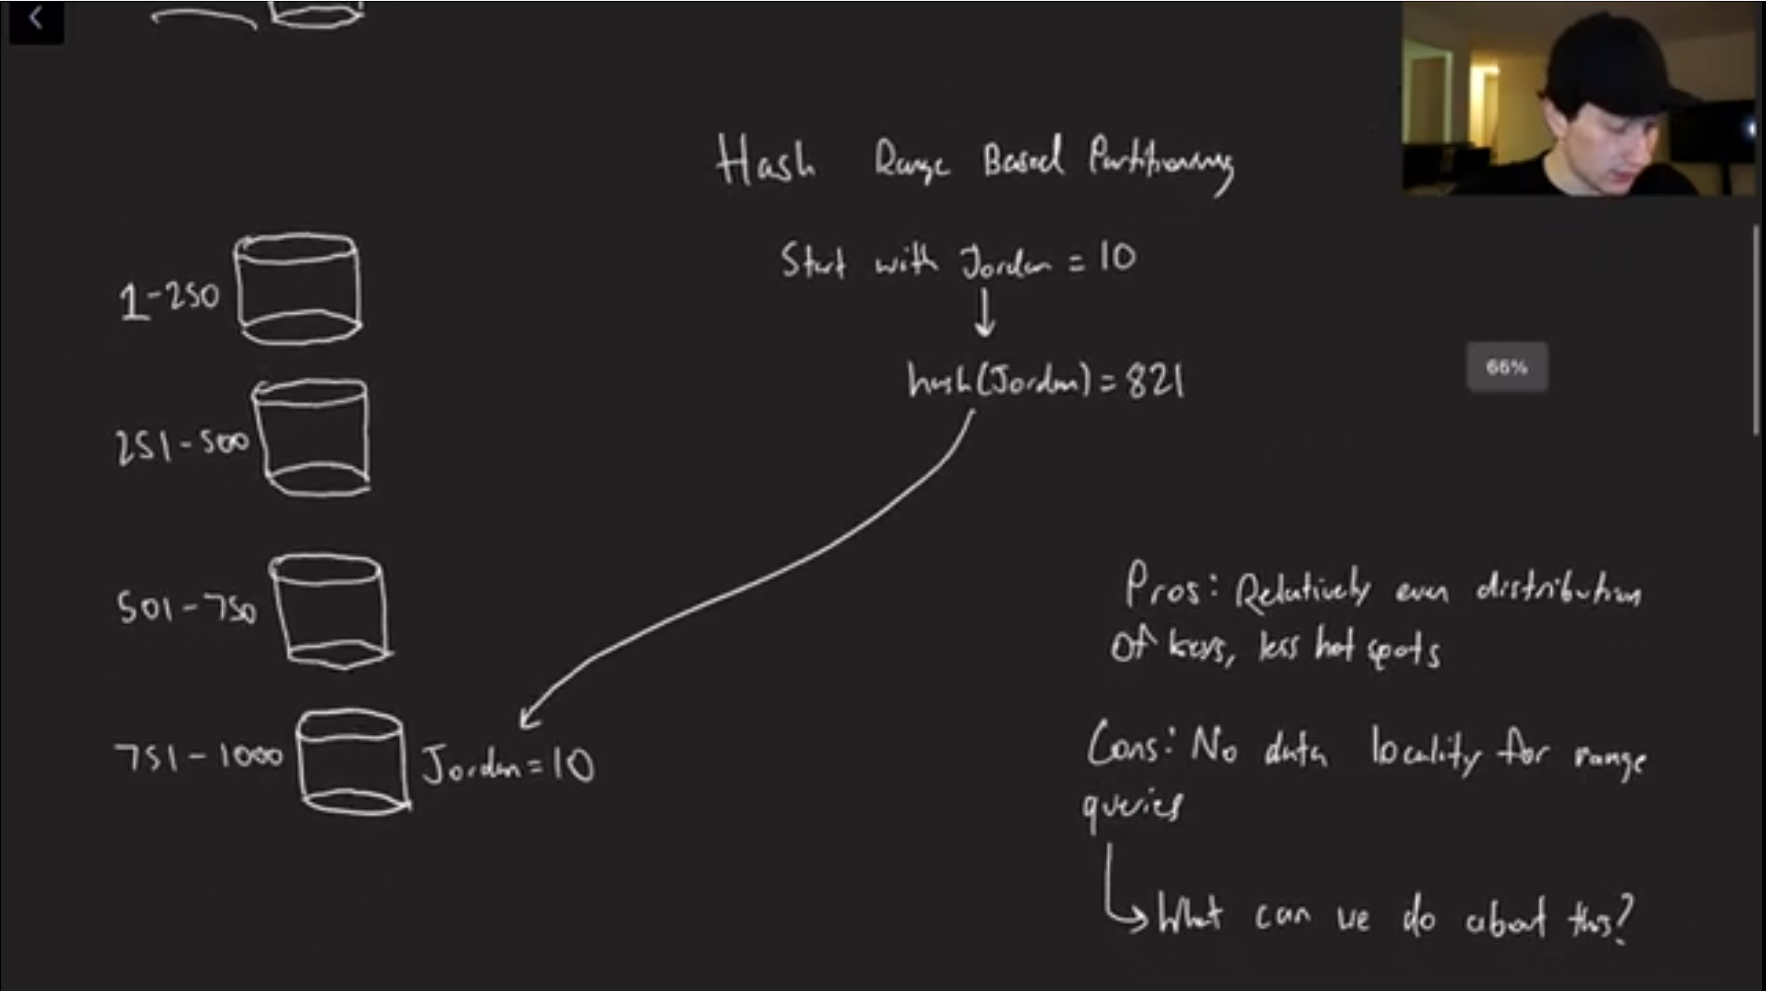 Hash Range Based Partitioning
Start with Jordan = 10
hash(Jordan) = 821
66%
1-250
251-500
501-750
751-1000
Jordan = 10
Pros: Relatively even distribution
of keys, less hot spots
Cons: No data locality for range
queries
What can we do about this?